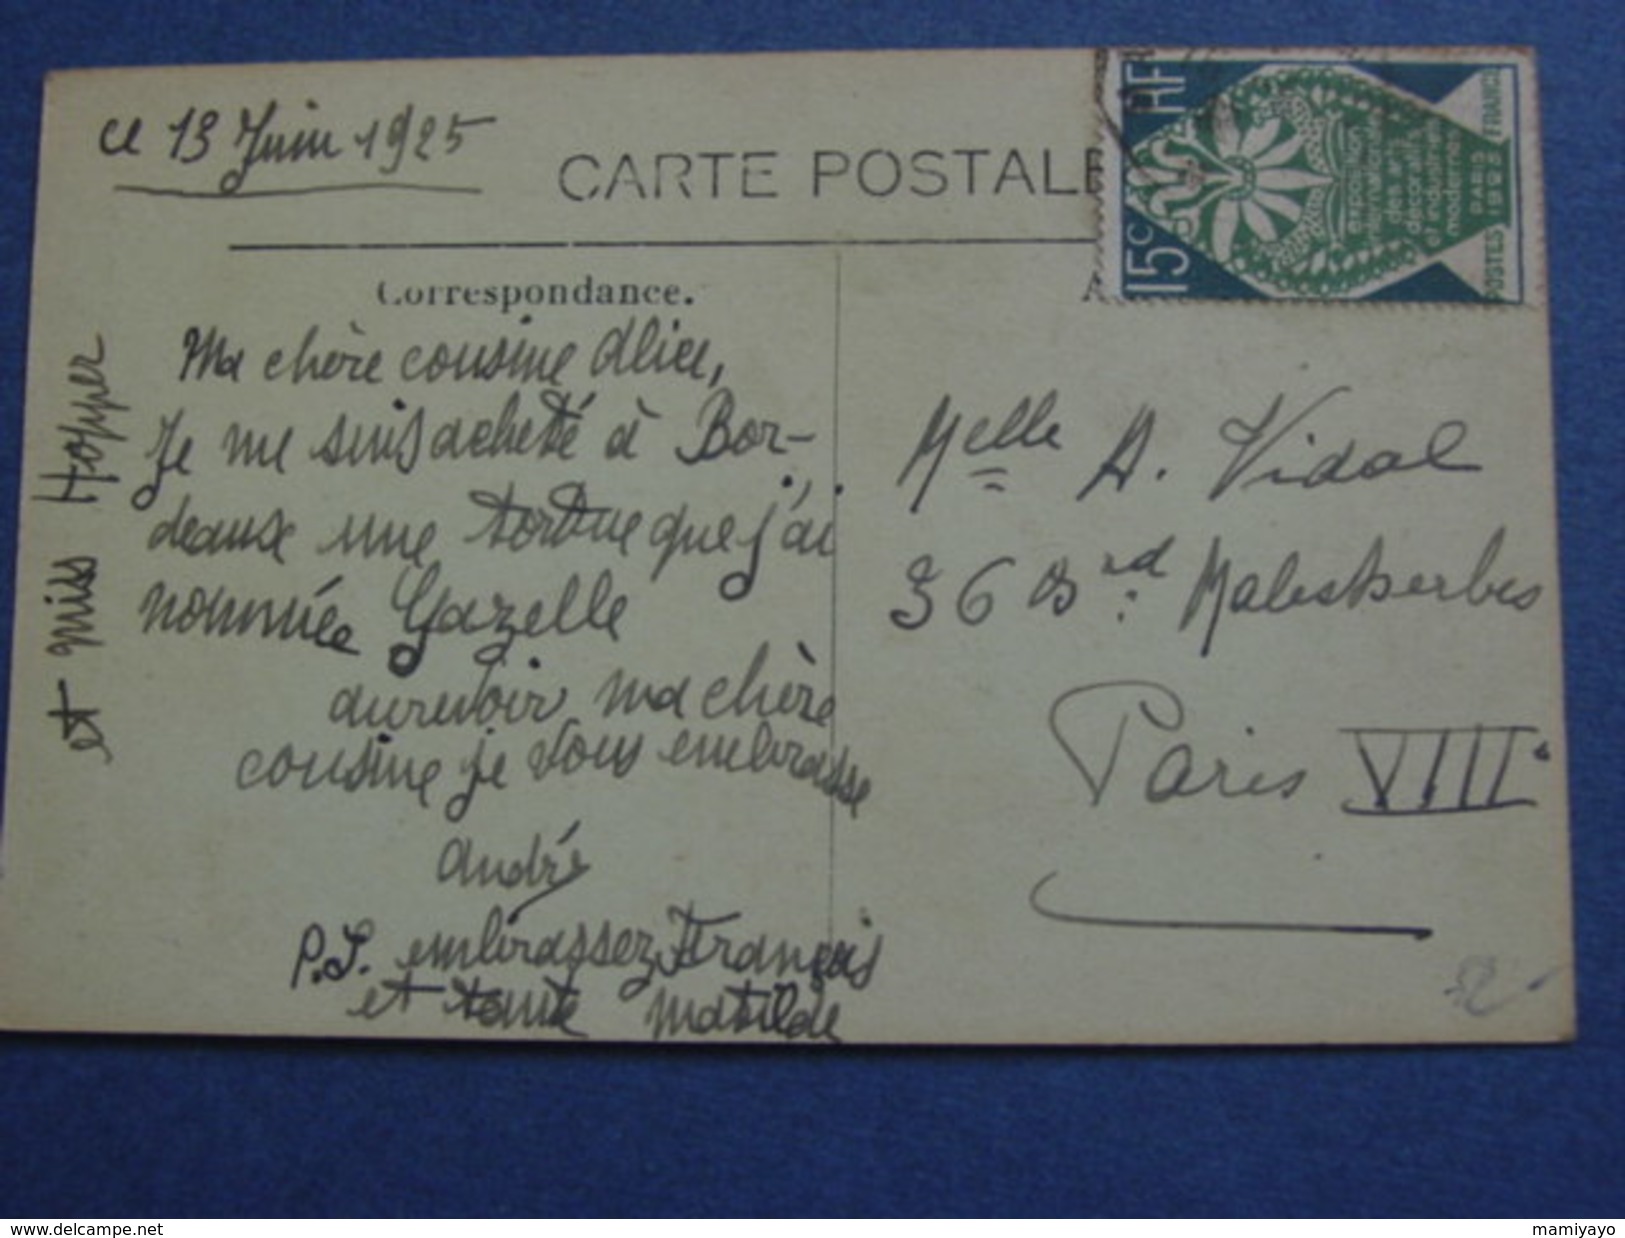 ce 13 Juin 1925
CARTE POSTALE
Correspondance.
Ma chère cousine Alice,
Je me suis acheté à Bor-
deaux une tortue que j'ai
nommée Gazelle
au revoir ma chère
cousine je vous embrasse
André
P.S. embrassez François
et tante Matilde
et miss Hopper
RF
15c
exposition
internationale
des arts
décoratifs
et industriels
modernes
PARIS
1925
POSTES FRANCE
Melle A. Vidal
36 Brd Malesherbes
Paris VIIIe
www.delcampe.net
mamiyayo